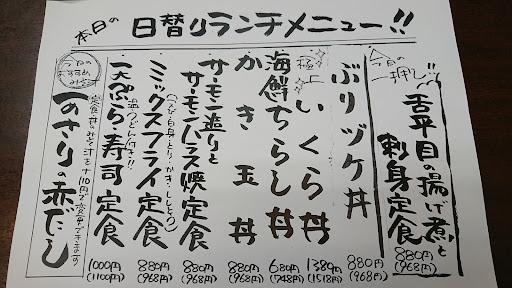 本日の
日替りランチメニュー!!
今日の一押し!!
舌平目の揚げ煮と
刺身定食
880円
(968円)
ぶりヅケ丼
880円
(968円)
極上
いくら丼
1380円
(1518円)
海鮮ちらし丼
680円
(748円)
かき玉丼
880円
(968円)
サーモン造りと
サーモンハラス焼定食
880円
(968円)
ミックスフライ定食
880円
(968円)
温うどん付き!!
天ぷら・寿司定食
1000円
(1100円)
今日の
おすすめ
みそ汁
定食、丼のみそ汁を+110円で変更できます
あさりの赤だし